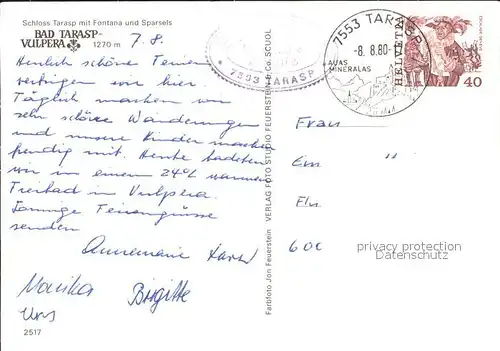 Schloss Tarasp mit Fontana und Sparsels
BAD TARASP-
VULPERA 1270 m
7. 8.
Herlich schöne Ferien
verbringen wir hier.
Täglich machen wir
sehr schöne Wanderungen
und unsere Kinder machen
freudig mit. Heute badeten
wir in einem 24° warmen
Freibad in Vulpera.
Sonnige Feriengrüsse
senden
Annemarie
Monika
Brigitte
Urs
2517
Farbfoto Jon Feuerstein VERLAG FOTO STUDIO FEUERSTEIN & Co. SCUOL
7553 TARASP
7553 TARASP
-8. 8.80-
AUAS
MINERALAS
HELVETIA
40
Frau
Em "
privacy protection
Datenschutz
600